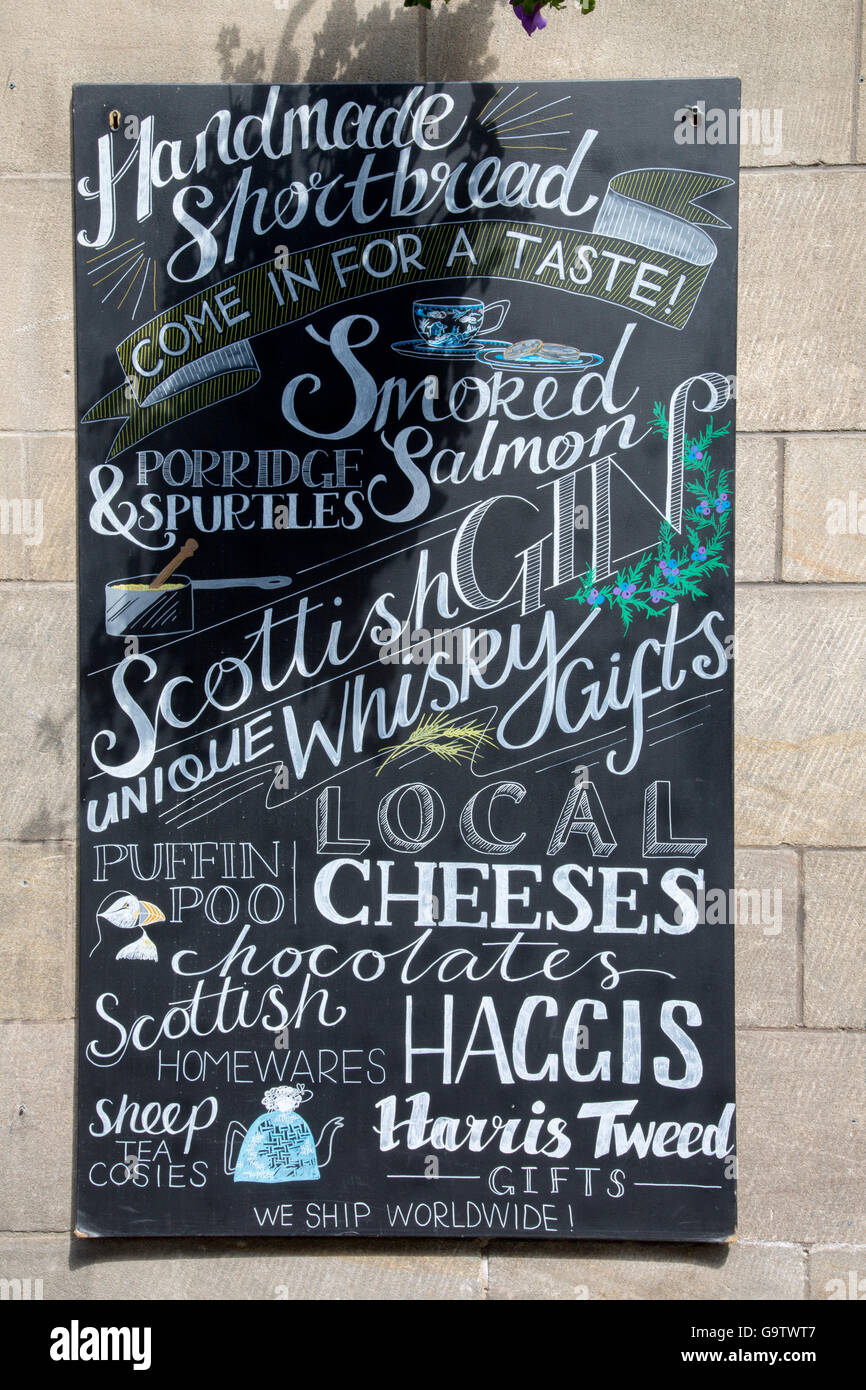 Handmade
Shortbread
COME IN FOR A TASTE!
Smoked
Salmon
PORRIDGE
& SPURTLES
GIN
Scottish
Whisky
UNIQUE
Gifts
LOCAL
CHEESES
PUFFIN
POO
chocolates
Scottish
HOMEWARES
HAGGIS
sheep
TEA
COSIES
Harris Tweed
GIFTS
WE SHIP WORLDWIDE!
a
alamy
Image ID: G9TWT7
www.alamy.com